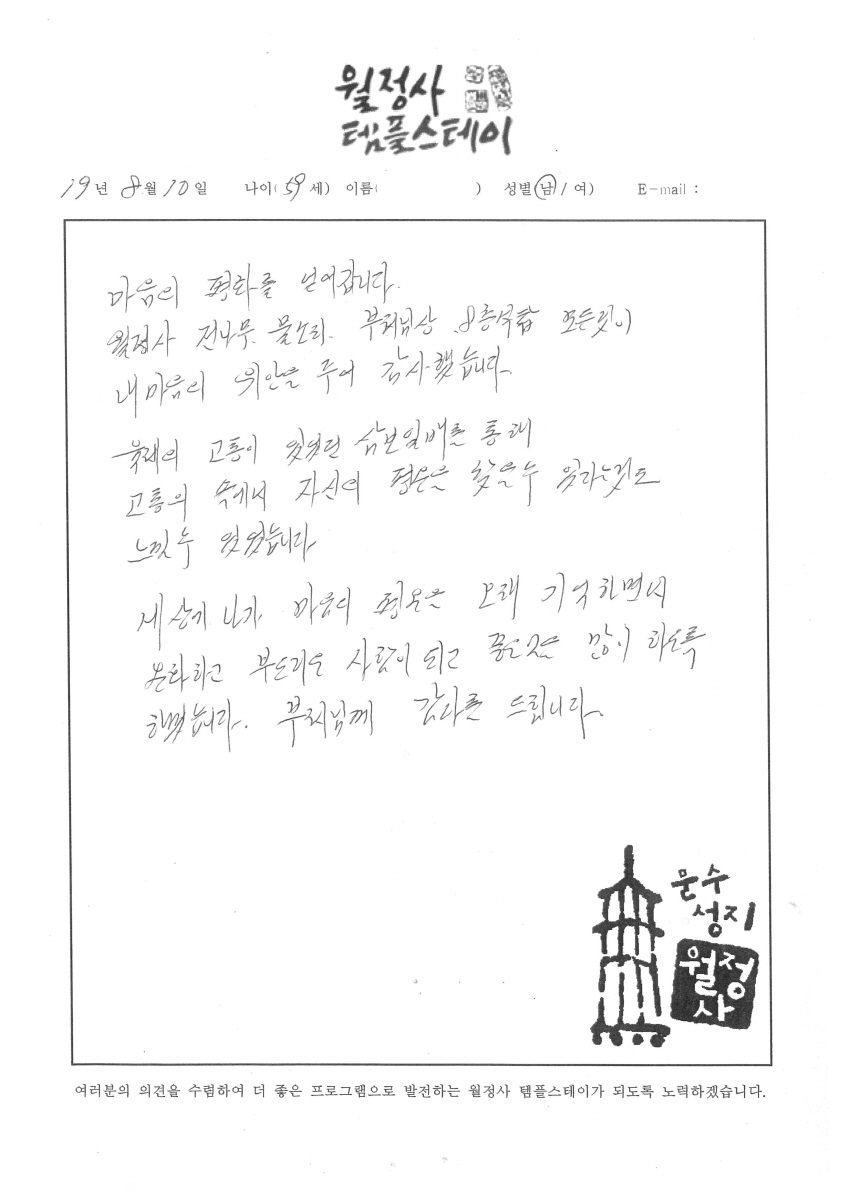 월정사
템플스테이
19년 8월 10일 나이(59세) 이름( ) 성별(남/여) E-mail :
마음의 평화를 얻어갑니다.
월정사 전나무. 물소리. 부처님상. 8층석탑 모든것이
내마음의 위안을 주어 감사했습니다.
육체의 고통이 있었던 삼보일배를 통해
고통의 속에서 자신의 평온을 찾을수 있다는것도
느낄수 있었습니다
세상에 나가 마음의 평온을 오래 기억하면서
온화하고 부드러운 사람이 되고 좋은것을 많이 하도록
하겠습니다. 부처님께 감사를 드립니다.
문수
성지
월정
사
여러분의 의견을 수렴하여 더 좋은 프로그램으로 발전하는 월정사 템플스테이가 되도록 노력하겠습니다.